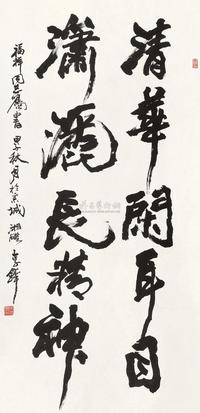 清華開耳目
瀟灑長精神
福祥同志屬書 甲子秋月於京城 湘磁李鐸